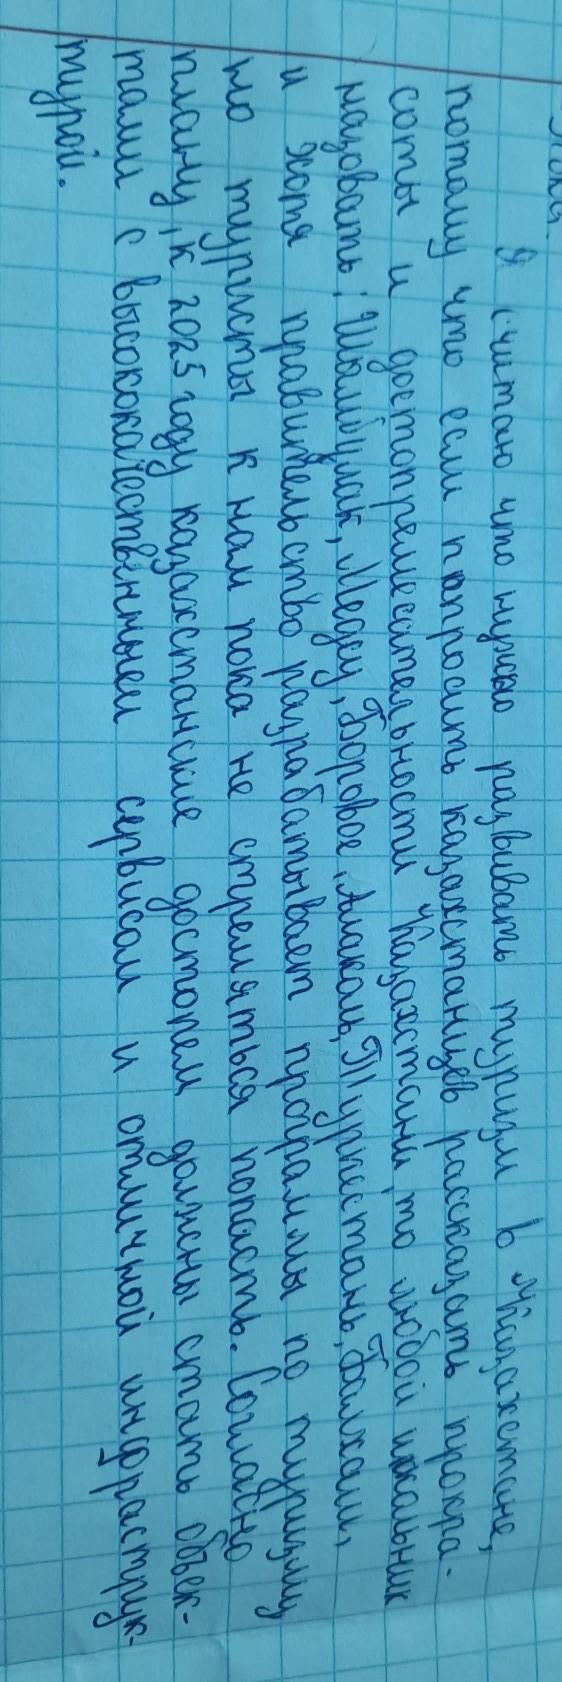 Я считаю что нужно развивать туризм в Казахстане,
потому что если попросить казахстанцев рассказать про кра-
соты и достопремесательности Казахстани, то любой школьник
назовать: Шымбулак, Медеу, Боровое, Алаколь, Туркестань, Балхаш,
и Хотя правительство разрабатывает программы по туризму
но туристы к нам пока не стремяться попасть. Согласно
плану, к 2025 году казахстанские достопем должны стать объек-
тами с высококачественныем сервисом и отличной инфраструк-
турой.